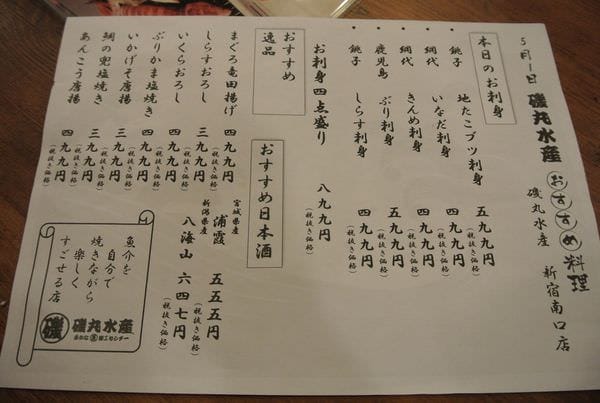 5月1日 磯丸水産 おすすめ料理
磯丸水産 新宿南口店
本日のお刺身
・銚子 地たこブツ刺身 五九九円(税抜き価格)
・網代 いなだ刺身 四九九円(税抜き価格)
・網代 きんめ刺身 四九九円(税抜き価格)
・鹿児島 ぶり刺身 五九九円(税抜き価格)
・銚子 しらす刺身 四九九円(税抜き価格)
お刺身四点盛り 八九九円(税抜き価格)
おすすめ
逸品
まぐろ竜田揚げ 四九九円(税抜き価格)
しらすおろし 三九九円(税抜き価格)
いくらおろし 四九九円(税抜き価格)
ぶりかま塩焼き 四九九円(税抜き価格)
いかげそ唐揚 三九九円(税抜き価格)
鯛の兜塩焼き 三九九円(税抜き価格)
あんこう唐揚 四九九円(税抜き価格)
おすすめ日本酒
宮城県産
浦霞 五五五円(税抜き価格)
新潟県産
八海山 六四七円(税抜き価格)
魚介を
自分で
焼きながら
楽しく
すごせる店
磯 磯丸水産